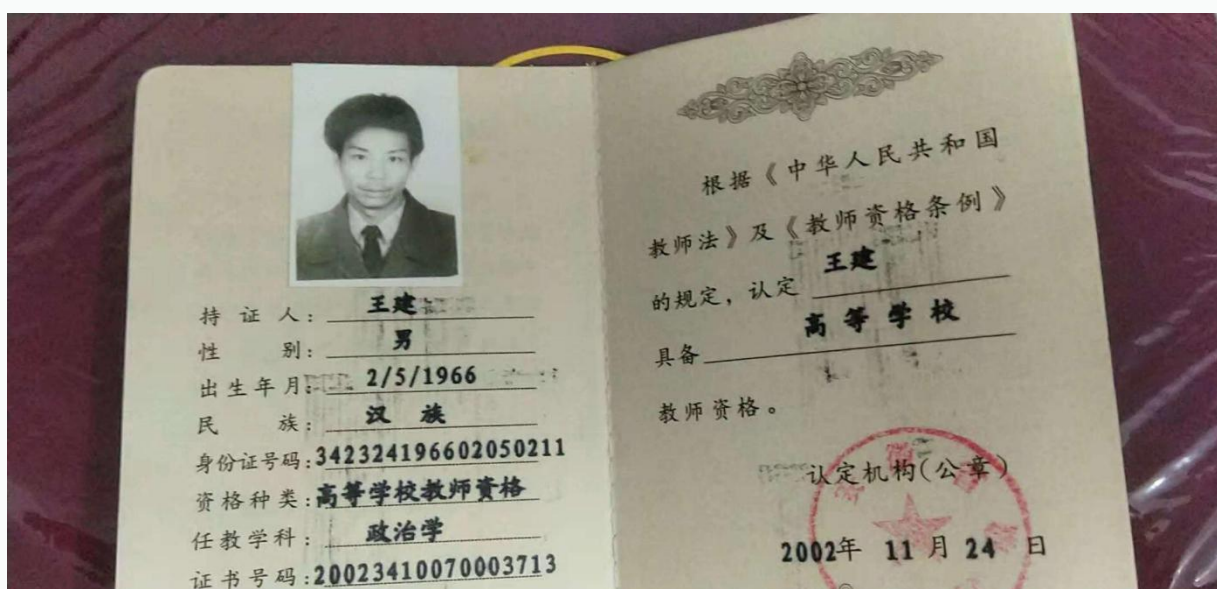 持证人：王建
性别：男
出生年月：2/5/1966
民族：汉族
身份证号码：342324196602050211
资格种类：高等学校教师资格
任教学科：政治学
证书号码：20023410070003713
根据《中华人民共和国
教师法》及《教师资格条例》
的规定，认定 王建
具备 高等学校
教师资格。
认定机构(公章)
2002年 11月 24日